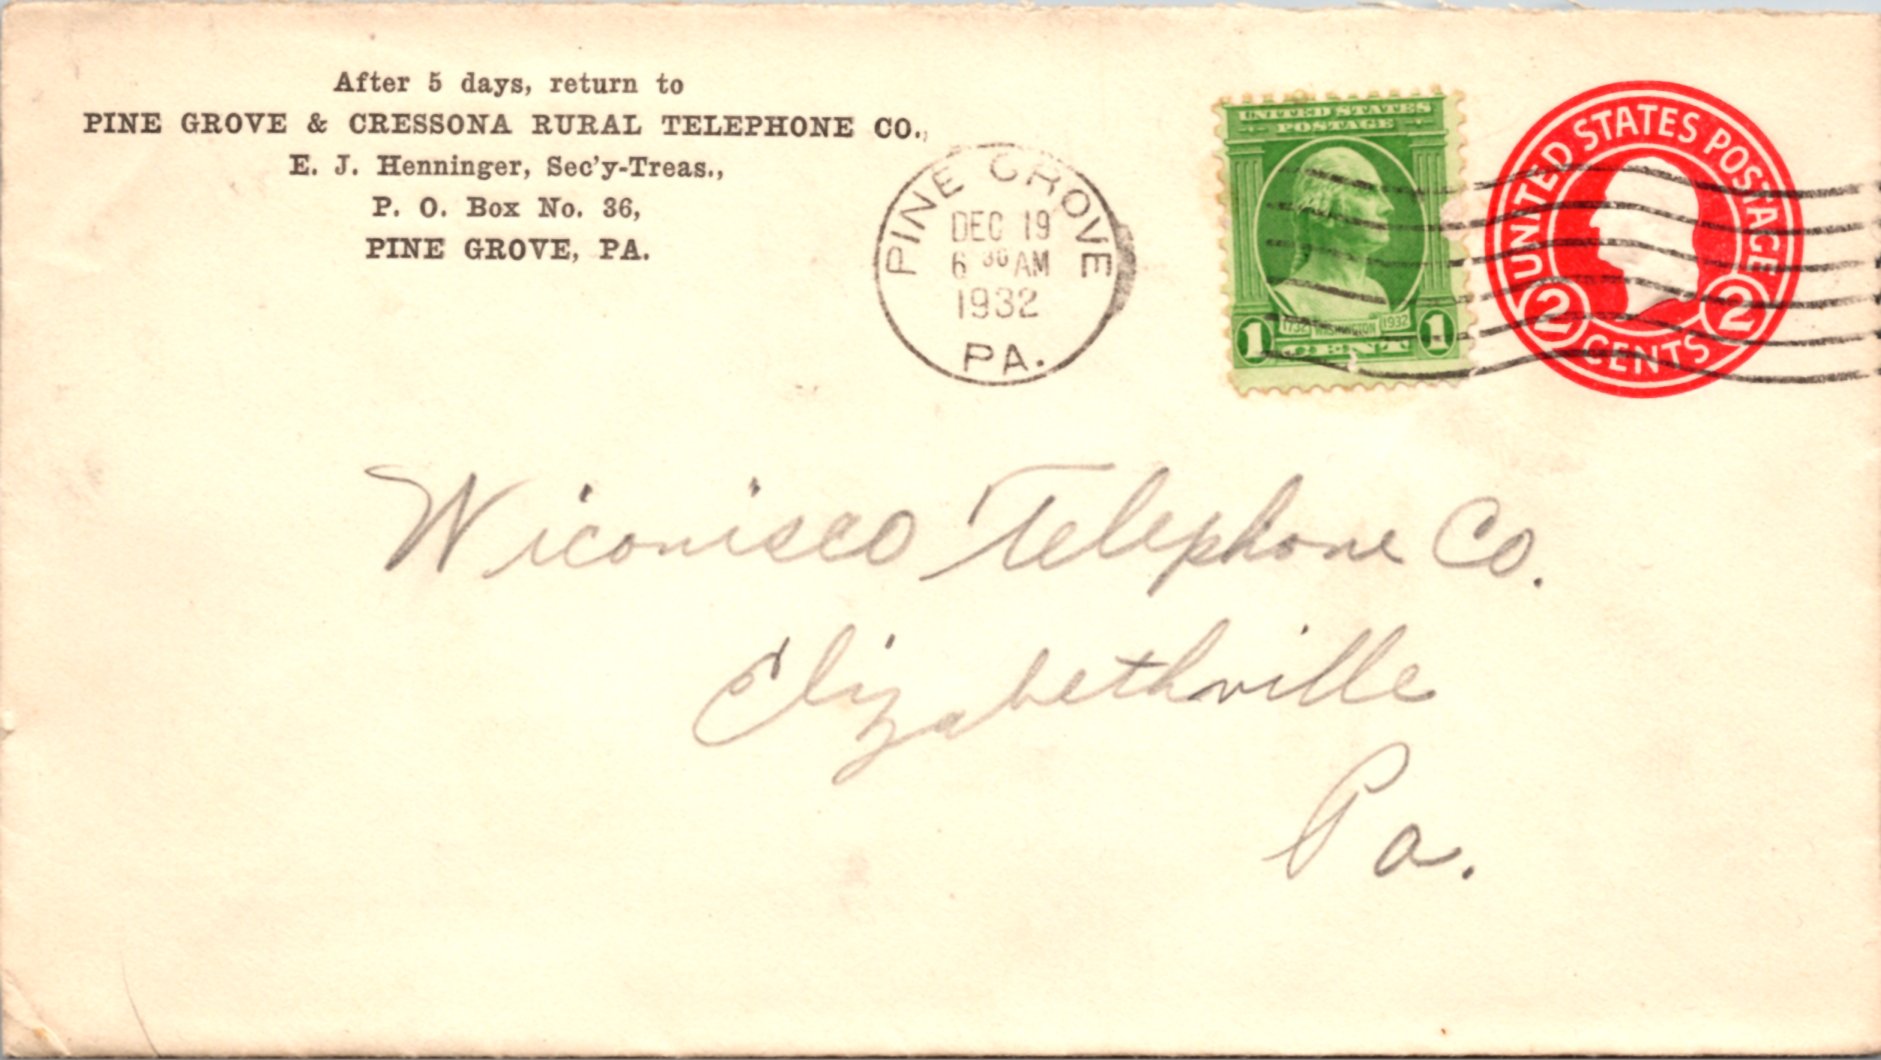 After 5 days, return to
PINE GROVE & CRESSONA RURAL TELEPHONE CO.,
E. J. Henninger, Sec'y-Treas.,
P. O. Box No. 36,
PINE GROVE, PA.
PINE GROVE
DEC 19
6 30 AM
1932
PA.
UNITED STATES
POSTAGE
1732 WASHINGTON 1932
1 CENT 1
UNITED STATES POSTAGE
2 2
CENTS
Wiconisco Telephone Co.
Elizabethville
Pa.